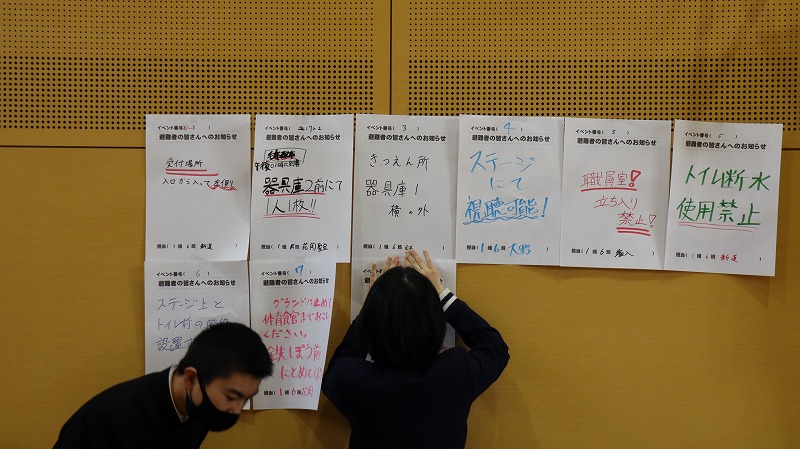 イベント番号(
避難者の皆さんへのお知らせ
受付場所
入口から入って
担当( 1 組 6 班 新道 )
イベント番号(
避難者の皆さんへのお知らせ
器具庫2前にて
1人1枚!!
担当( 1 組 班 )
イベント番号( 3 )
避難者の皆さんへのお知らせ
きつえん所
器具庫1
横の外
担当( 1 組 6 班 )
イベント番号( 4 )
避難者の皆さんへのお知らせ
ステージ
にて
視聴可能!
担当( 1 組 6 班 大野 )
イベント番号( 5 )
避難者の皆さんへのお知らせ
職員室!
立ち入り
禁止!
担当( 1 組 6 班 )
イベント番号( 5 )
避難者の皆さんへのお知らせ
トイレ断水
使用禁止
担当( 1 組 6 班 新道 )
イベント番号( 6 )
避難者の皆さんへのお知らせ
ステージ上と
トイレ前の
設置
イベント番号( 7 )
避難者の皆さんへのお知らせ
グランドに止めて
体育館まで
ください。
鉄ぼう前
にとめて
担当( 1 組 6 班 )